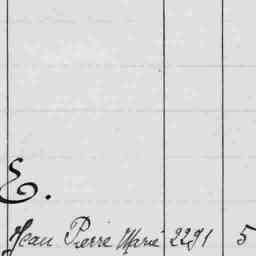 E.
Jean Pierre Marie 2291 5